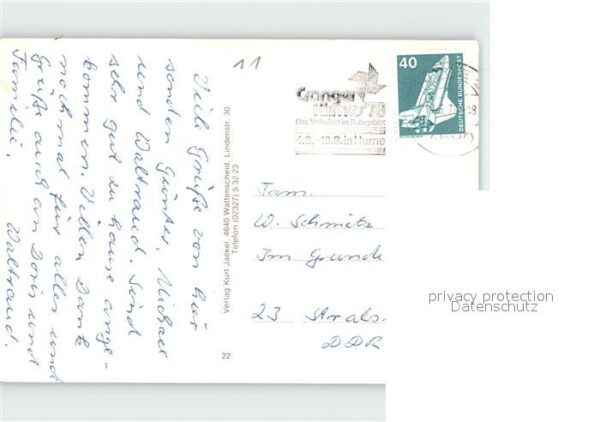 11
Viele Grüße von hier
senden Günter, Michael
und Waltraud. Sind
sehr gut zu hause ange-
kommen. Vielen Dank
noch mal für alles und
Grüße auch an Doris und
Familie. Waltraud.
Verlag Kurt Jaekel, 4640 Wattenscheid, Lindenstr. 30
Telefon (02327) 5 32 23
22
Cranger
Kirmes '78
Das Volksfest im Ruhrgebiet
4.8.-13.8. in Herne
40
DEUTSCHE BUNDESPOST
Fam.
W. Schmitz
Im Grunde
23 Strals
DDR
privacy protection
Datenschutz